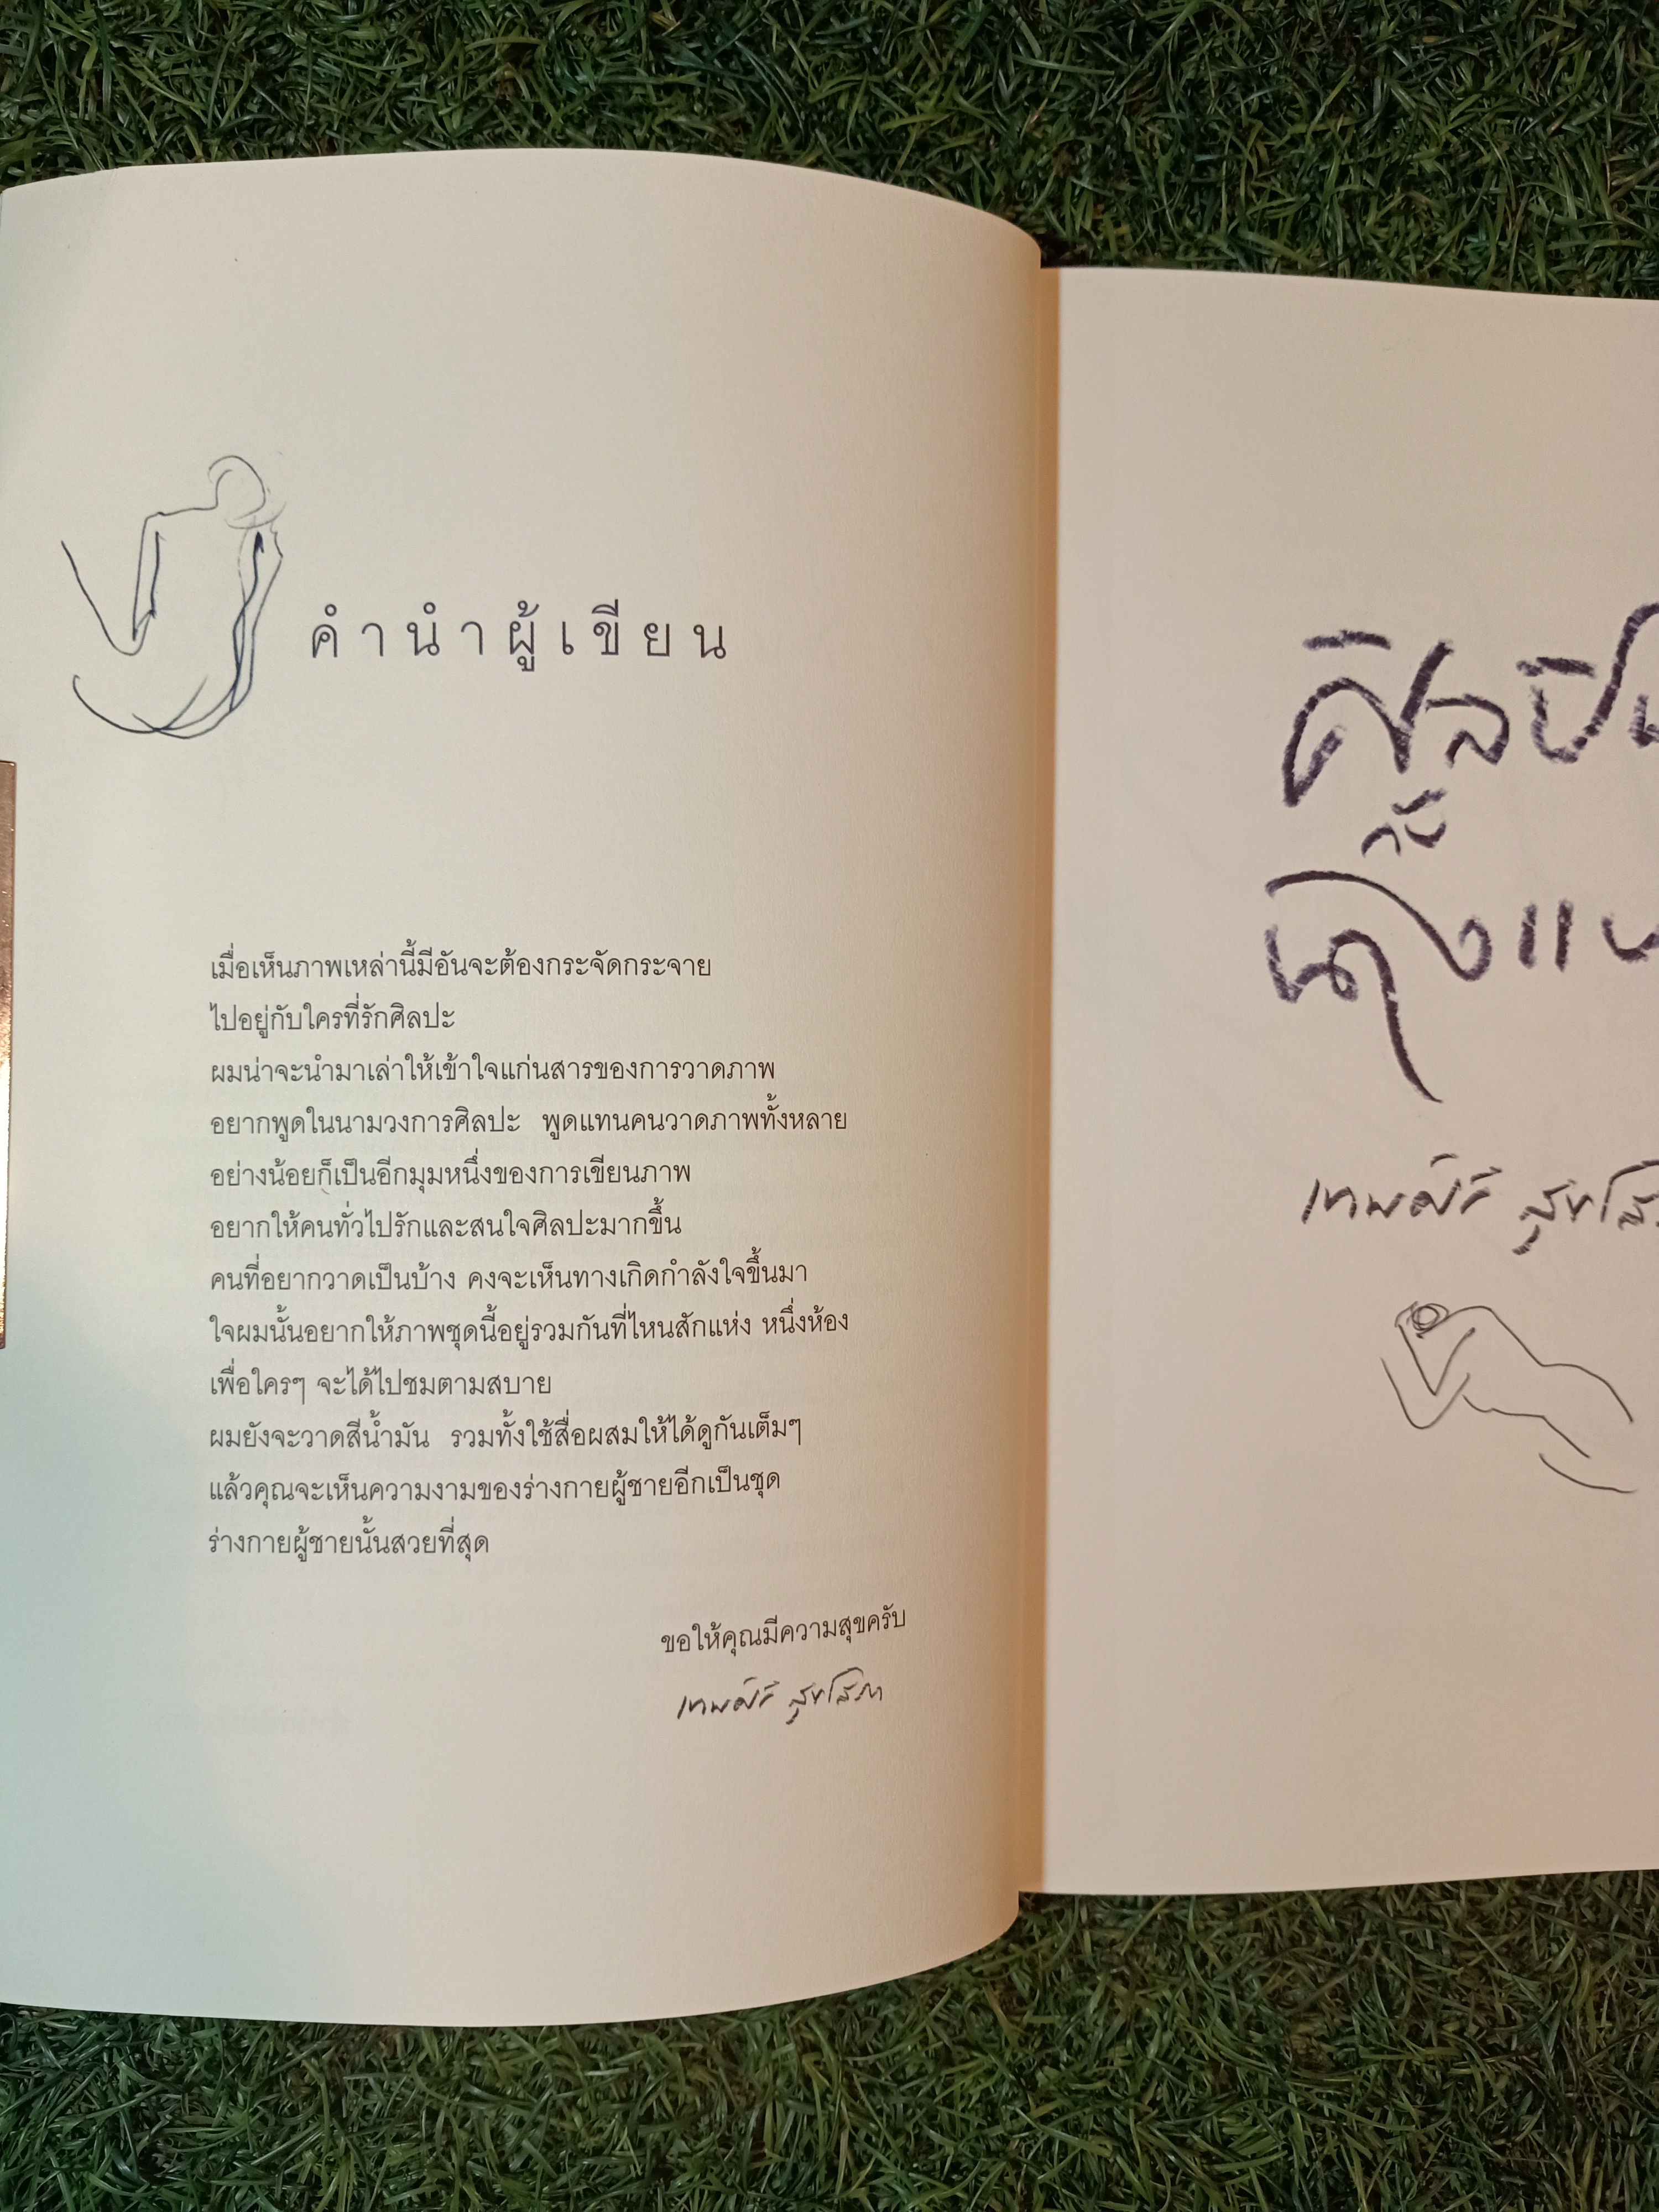 คำนำผู้เขียน
เมื่อเห็นภาพเหล่านี้มีอันจะต้องกระจัดกระจาย
ไปอยู่กับใครที่รักศิลปะ
ผมน่าจะนำมาเล่าให้เข้าใจแก่นสารของการวาดภาพ
อยากพูดในนามวงการศิลปะ พูดแทนคนวาดภาพทั้งหลาย
อย่างน้อยก็เป็นอีกมุมหนึ่งของการเขียนภาพ
อยากให้คนทั่วไปรักและสนใจศิลปะมากขึ้น
คนที่อยากวาดเป็นบ้าง คงจะเห็นทางเกิดกำลังใจขึ้นมา
ใจผมนั้นอยากให้ภาพชุดนี้อยู่รวมกันที่ไหนสักแห่ง หนึ่งห้อง
เพื่อใครๆ จะได้ไปชมตามสบาย
ผมยังจะวาดสีน้ำมัน รวมทั้งใช้สื่อผสมให้ได้ดูกันเต็มๆ
แล้วคุณจะเห็นความงามของร่างกายผู้ชายอีกเป็นชุด
ร่างกายผู้ชายนั้นสวยที่สุด
ขอให้คุณมีความสุขครับ
เทพศิริ สุขโสภา
ศิลปิ
กับ
เทพศิริ สุขโส